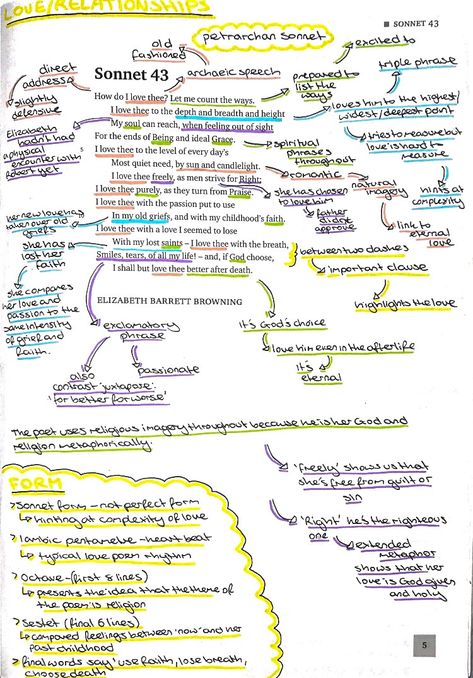 LOVE/RELATIONSHIPS
■ SONNET 43
petrarchan sonnet
old
fashioned
archaeic speech
excited to
prepared to
list the
ways
triple phrase
direct
address
slightly
defensive
Elizabeth
hadn't had
a physical
encounter with
Robert yet
Sonnet 43
How do I love thee? Let me count the ways.
I love thee to the depth and breadth and height
My soul can reach, when feeling out of sight
For the ends of Being and ideal Grace.
5
I love thee to the level of every day's
Most quiet need, by sun and candlelight.
I love thee freely, as men strive for Right;
I love thee purely, as they turn from Praise.
I love thee with the passion put to use
In my old griefs, and with my childhood's faith.
I love thee with a love I seemed to lose
With my lost saints – I love thee with the breath,
Smiles, tears, of all my life! – and, if God choose,
I shall but love thee better after death.
ELIZABETH BARRETT BROWNING
loves him to the highest/
widest/deepest point
tries to measure but
love is hard to
measure
hints at
complexity
spiritual
phrases
throughout
romantic
natural
imagery
link to
eternal
love
she has chosen
to love him
father
didn't
approve
her new love has
taken over old
griefs
she has
lost her
faith
she compares
her love and
passion to the
same intensity
of grief and
faith.
between two dashes
important clause
highlights the love
exclamatory
phrase
also
contrast 'juxtapose'
'for better for worse'
passionate
it's God's choice
love him even in the afterlife
it's
eternal
The poet uses religious imagery throughout because he is her God and
religion metaphorically.
'freely' shows us that
she's free from guilt or
sin
'Right' he's the righteous
one
extended
metaphor
shows that her
love is God given
and holy
FORM
> Sonnet form – not perfect form
↳ hinting at complexity of love
> Iambic pentametre – heart beat
↳ typical love poem rhythm
> Octave – (first 8 lines)
↳ presents the idea that the theme of
the poem is religion
> Sestet (final 6 lines)
↳ compared feelings between 'now' and her
past childhood
> final words say 'use faith, lose breath,
choose death
5